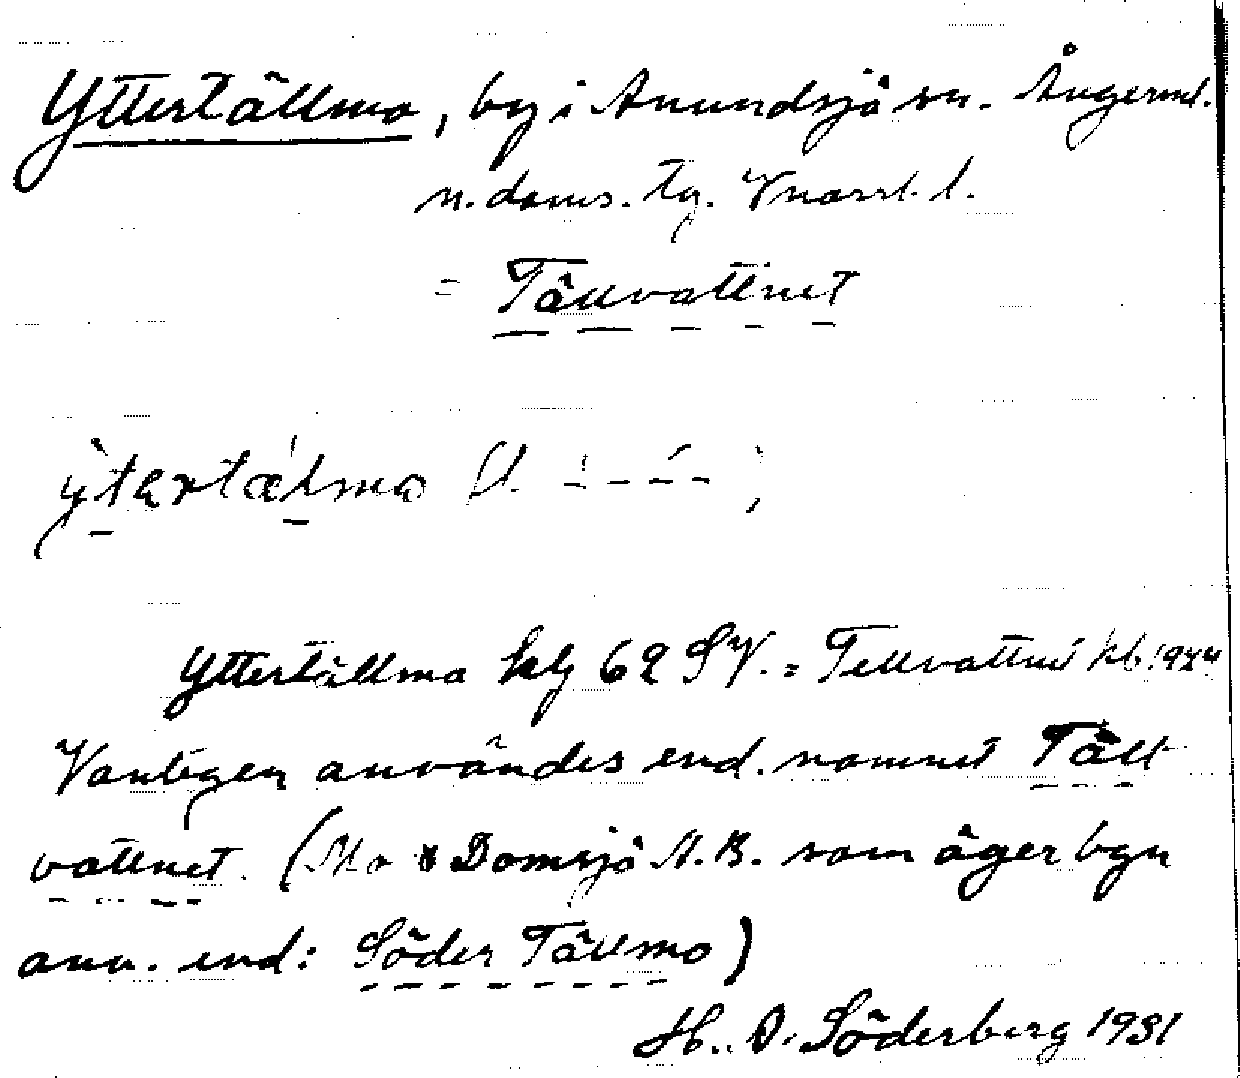 Yttertällmo, by i Anundsjö sn. Ångerml.
n. doms. tg. Vnorrl. l.
= Tällvattnet
Yttertällmo klg 62 SV. = Tellvattnet kb 1944
Vanligen användes end. namnet Täll
vattnet. (Mo & Domsjö A.B. som äger byn
anv. end: Söder Tällmo)
H. O. Söderberg 1931